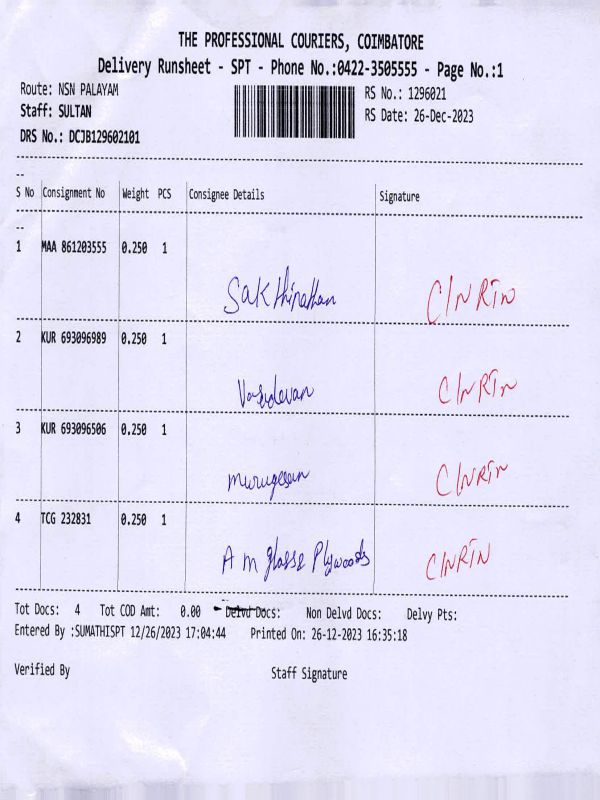 THE PROFESSIONAL COURIERS, COIMBATORE
Delivery Runsheet - SPT - Phone No.:0422-3505555 - Page No.:1
Route: NSN PALAYAM RS No.: 1296021
Staff: SULTAN RS Date: 26-Dec-2023
DRS No.: DCJB129602101
S No Consignment No Weight PCS Consignee Details Signature
1 MAA 861203555 0.250 1
Sakthinathan C/NRTN
2 KUR 693096989 0.250 1
Vasudevan C/NRTN
3 KUR 693096506 0.250 1
murugesan C/NRTN
4 TCG 232831 0.250 1
A m glasse Plywoods C/NRTN
Tot Docs: 4 Tot COD Amt: 0.00 Delvd Docs: Non Delvd Docs: Delvy Pts:
Entered By :SUMATHISPT 12/26/2023 17:04:44 Printed On: 26-12-2023 16:35:18
Verified By Staff Signature